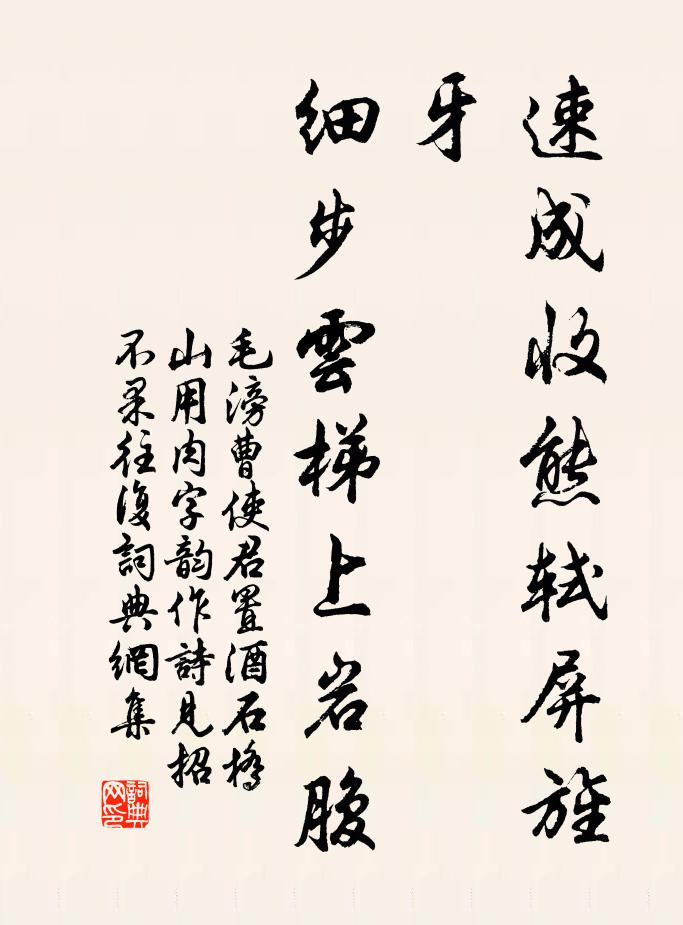 速成收熊轼屏旌
牙
细步雲梯上岩腹
毛滂曹使君置酒石橋
山用肉字韵作詩見招
不果往復詞典網集
詞典
网印